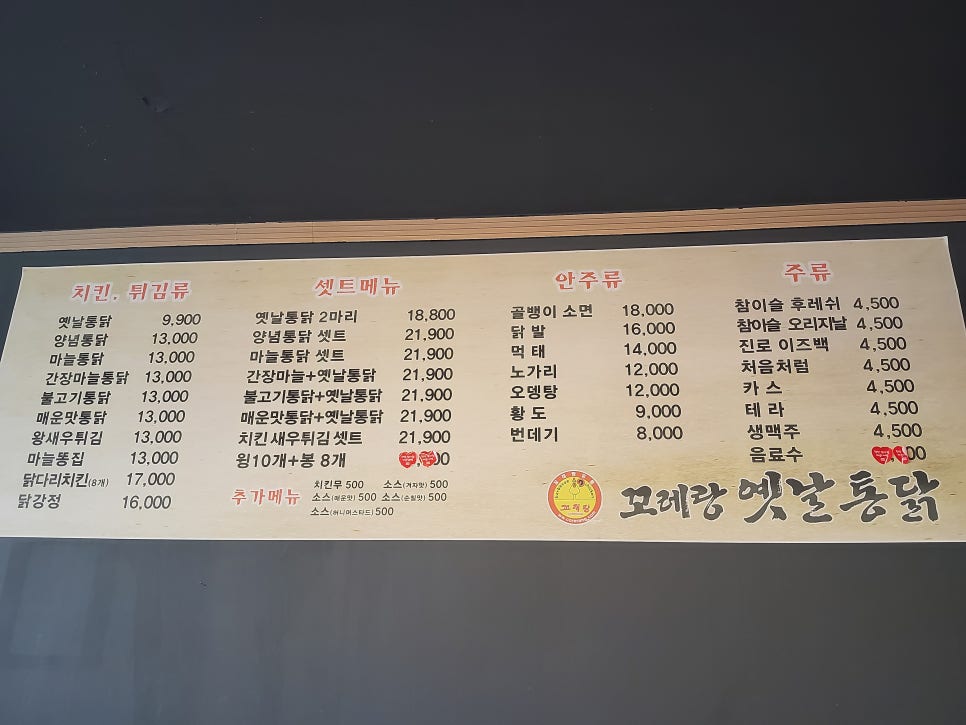 치킨, 튀김류
옛날통닭 9,900
양념통닭 13,000
마늘통닭 13,000
간장마늘통닭 13,000
불고기통닭 13,000
매운맛통닭 13,000
왕새우튀김 13,000
마늘똥집 13,000
닭다리치킨(8개) 17,000
닭강정 16,000
셋트메뉴
옛날통닭 2마리 18,800
양념통닭 셋트 21,900
마늘통닭 셋트 21,900
간장마늘+옛날통닭 21,900
불고기통닭+옛날통닭 21,900
매운맛통닭+옛날통닭 21,900
치킨 새우튀김 셋트 21,900
윙10개+봉 8개
추가메뉴
치킨무 500 소스(겨자맛) 500
소스(매운맛) 500 소스(순한맛) 500
소스(허니머스타드) 500
안주류
골뱅이 소면 18,000
닭 발 16,000
먹 태 14,000
노가리 12,000
오뎅탕 12,000
황 도 9,000
번데기 8,000
주류
참이슬 후레쉬 4,500
참이슬 오리지날 4,500
진로 이즈백 4,500
처음처럼 4,500
카 스 4,500
테 라 4,500
생맥주 4,500
음료수
꼬레랑
꼬레랑 옛날통닭